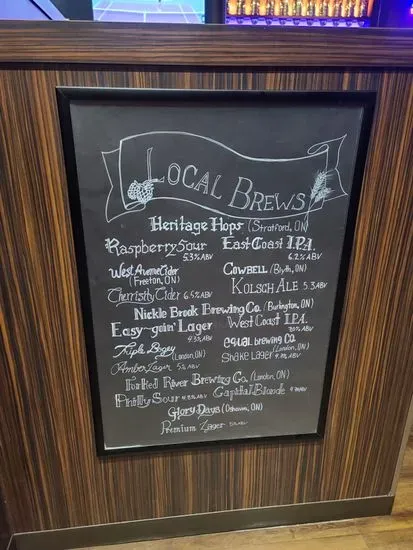 LOCAL BREWS
Heritage Hops (Stratford, ON)
Raspberry Sour 5.3% ABV
East Coast I.P.A. 6.2% ABV
West Avenue Cider (Freelton, ON)
Cherristy Cider 6.5% ABV
COWBELL (Blyth, ON)
KOLSCH ALE 5.3 ABV
Nickle Brook Brewing Co. (Burlington, ON)
Easy-goin' Lager 4.3% ABV
West Coast I.P.A. 7.0% ABV
Triple Bogey (London, ON)
Amber Lager 5% ABV
equal brewing co. (London, ON)
Shake Lager ABV
Forked River Brewing Co. (London, ON)
Philly Sour ABV
Capital Blonde ABV
Glory Days (Oshawa, ON)
Premium Lager 5% ABV